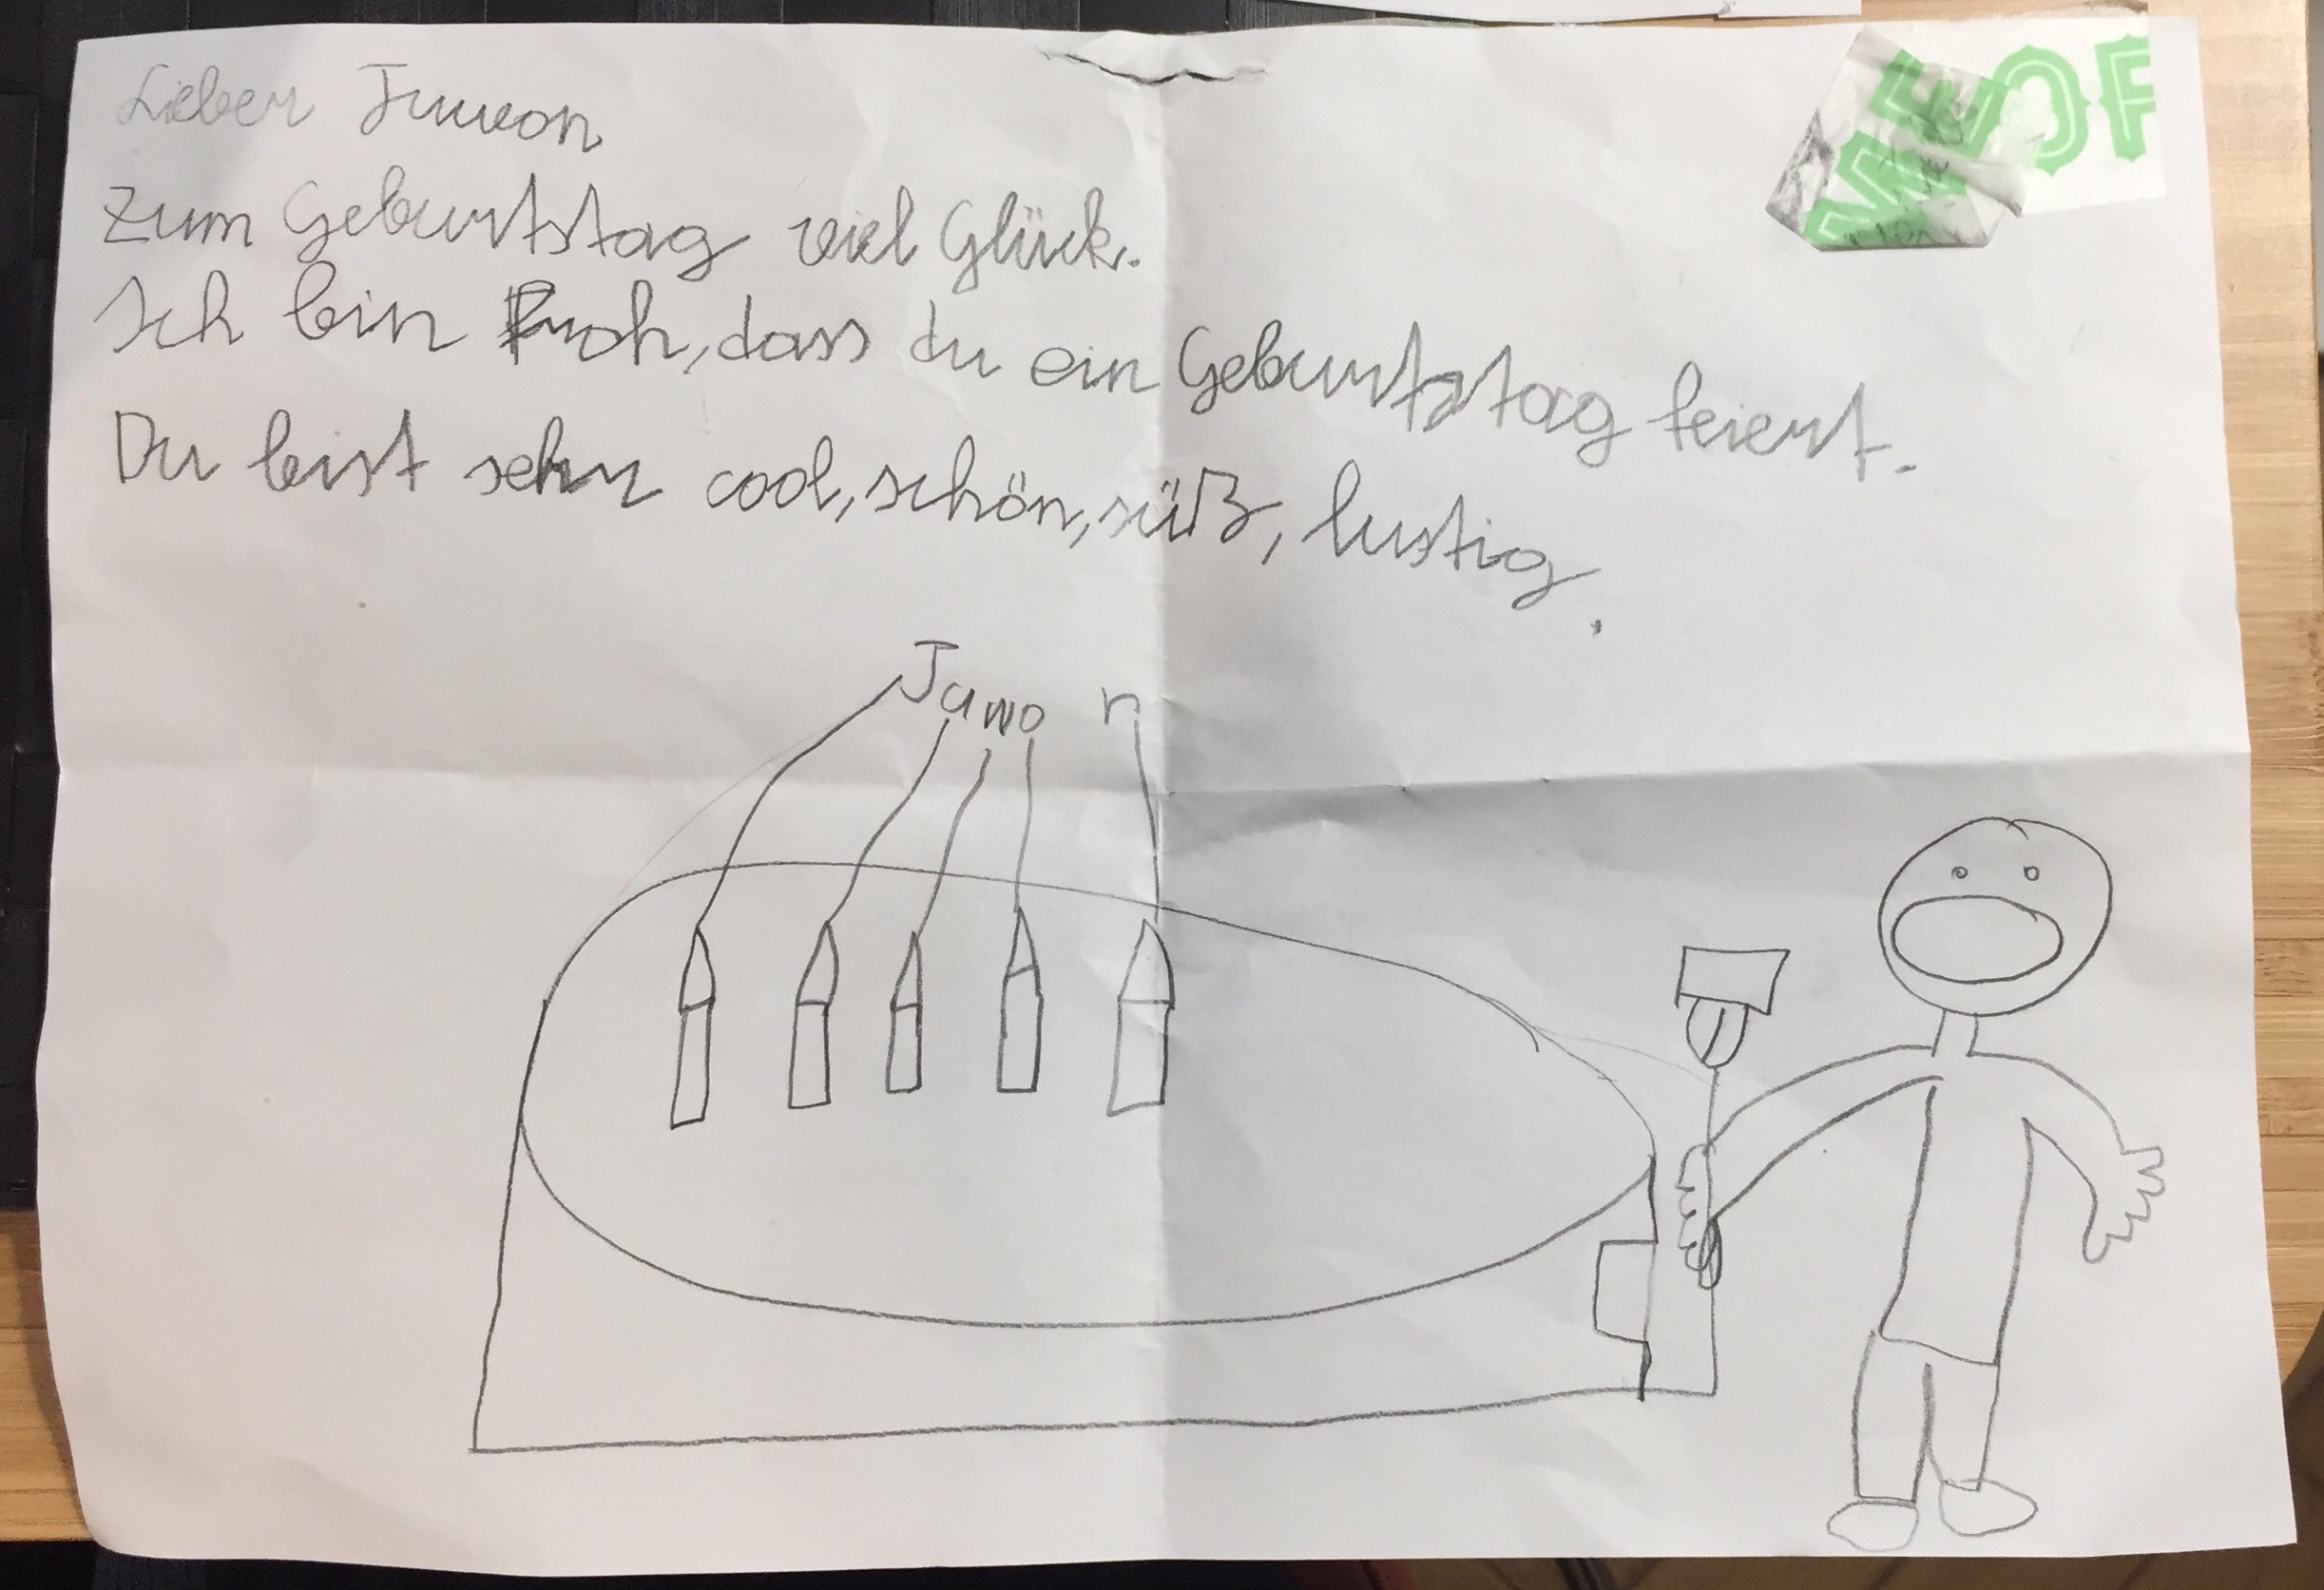 Lieber Juwon
Zum Geburtstag viel Glück.
Ich bin Froh, dass du ein Geburtstag feiert.
Du bist sehr cool, schön, süß, lustig.
Juwo n